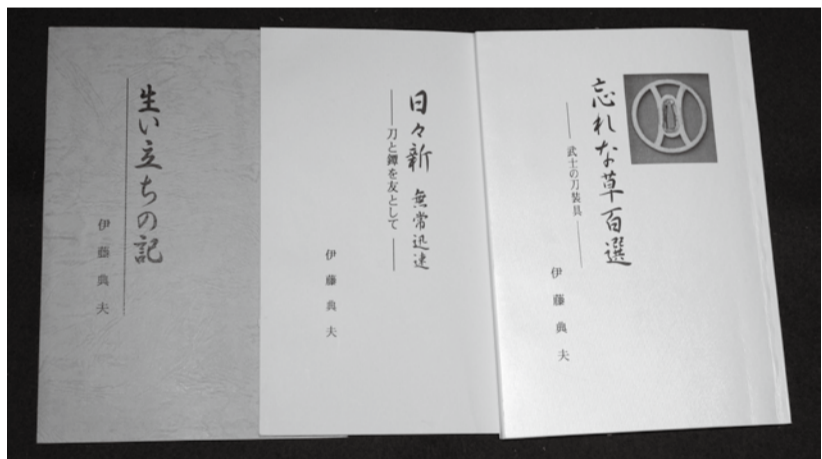 生い立ちの記
伊藤典夫
日々新 無常迅速
――刀と鐔を友として――
伊藤典夫
忘れな草百選
――武士の刀装具――
伊藤典夫